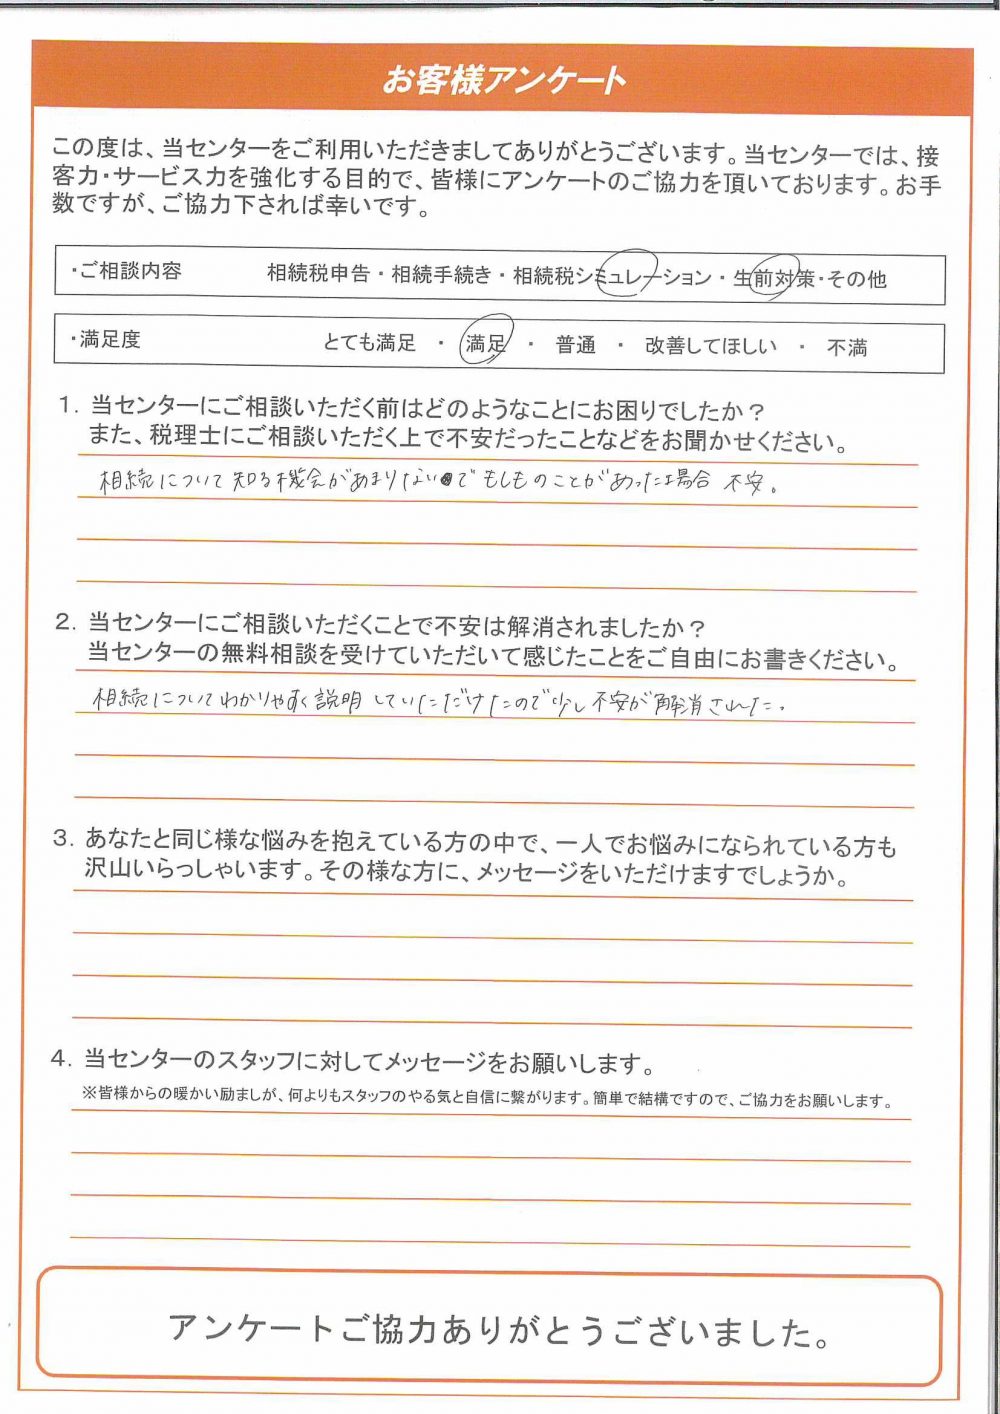 お客様アンケート
この度は、当センターをご利用いただきましてありがとうございます。当センターでは、接
客力・サービス力を強化する目的で、皆様にアンケートのご協力を頂いております。お手
数ですが、ご協力下されば幸いです。
・ご相談内容 相続税申告・相続手続き・相続税シミュレーション・生前対策・その他
・満足度 とても満足 ・ 満足 ・ 普通 ・ 改善してほしい ・ 不満
1. 当センターにご相談いただく前はどのようなことにお困りでしたか？
また、税理士にご相談いただく上で不安だったことなどをお聞かせください。
相続について知る機会があまりないので もしものことがあった場合 不安。
2. 当センターにご相談いただくことで不安は解消されましたか？
当センターの無料相談を受けていただいて感じたことをご自由にお書きください。
相続についてわかりやすく説明していただけたので少し不安が解消された。
3. あなたと同じ様な悩みを抱えている方の中で、一人でお悩みになられている方も
沢山いらっしゃいます。その様な方に、メッセージをいただけますでしょうか。
4. 当センターのスタッフに対してメッセージをお願いします。
※皆様からの暖かい励ましが、何よりもスタッフのやる気と自信に繋がります。簡単で結構ですので、ご協力をお願いします。
アンケートご協力ありがとうございました。